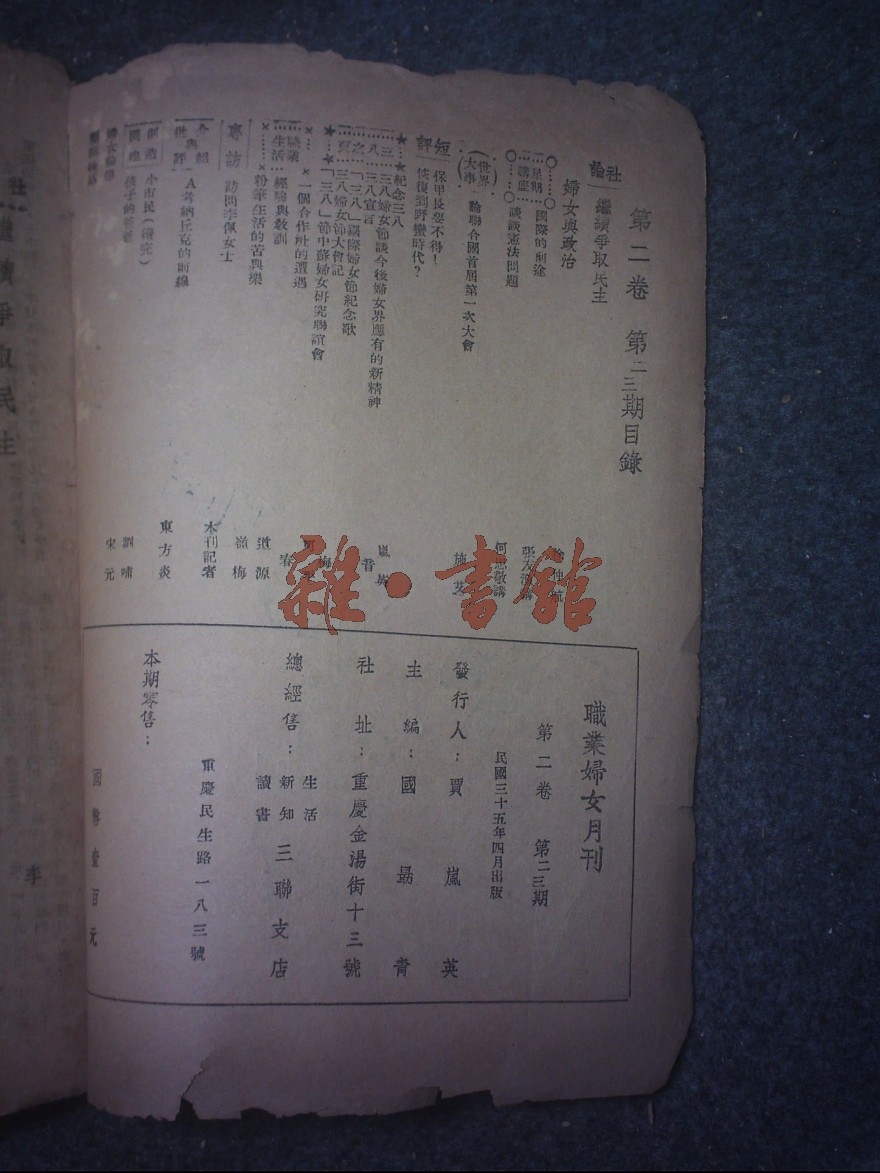 第二卷 第二三期目錄
社論
繼續爭取民主
婦女與政治
星期講座
國際的前途
談談憲法問題
張友漁講
何思敬講
(世界大事)
論聯合國首屆第一次大會
短評
保甲長忽不得!
恢復到野蠻時代?
★…★紀念三八
三八婦女節談今後婦女界應有的新精神
三八宣言
「三八」國際婦女節紀念歌
三八婦女節大會記
★…★「三八」節中蘇婦女研究聯誼會
嵐英
職業生活
一個合作社的遭遇
經驗與教訓
粉筆生活的苦與樂
道源
嶺梅
專訪
訪問李佩女士
本刊記者
介紹與批評
A考納丘克的前線
東方炎
創造園地
小市民(續完)
孩子的爸爸
劉嘯
宋元
雜·書館
職業婦女月刊
第二卷 第二三期
民國三十五年四月出版
發行人:賈嵐英
主編:國
社址:重慶金湯街十三號
總經售:生活 新知 讀書 三聯支店
重慶民生路一八三號
本期零售:
國幣壹百元
社
繼續爭取民主
李